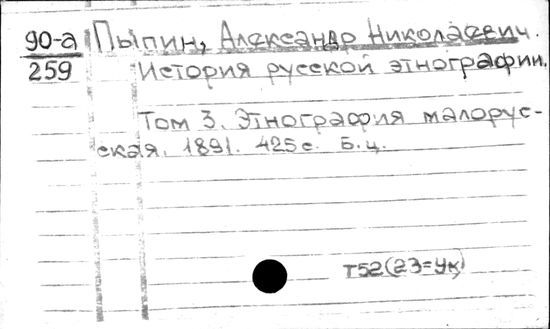 90-а Пыпин, Александр Николаевич.
259 История русской этнографии.
Том 3. Этнография малорус-
ская. 1891. 425с. Б.ц.
Т52(23=Ук)